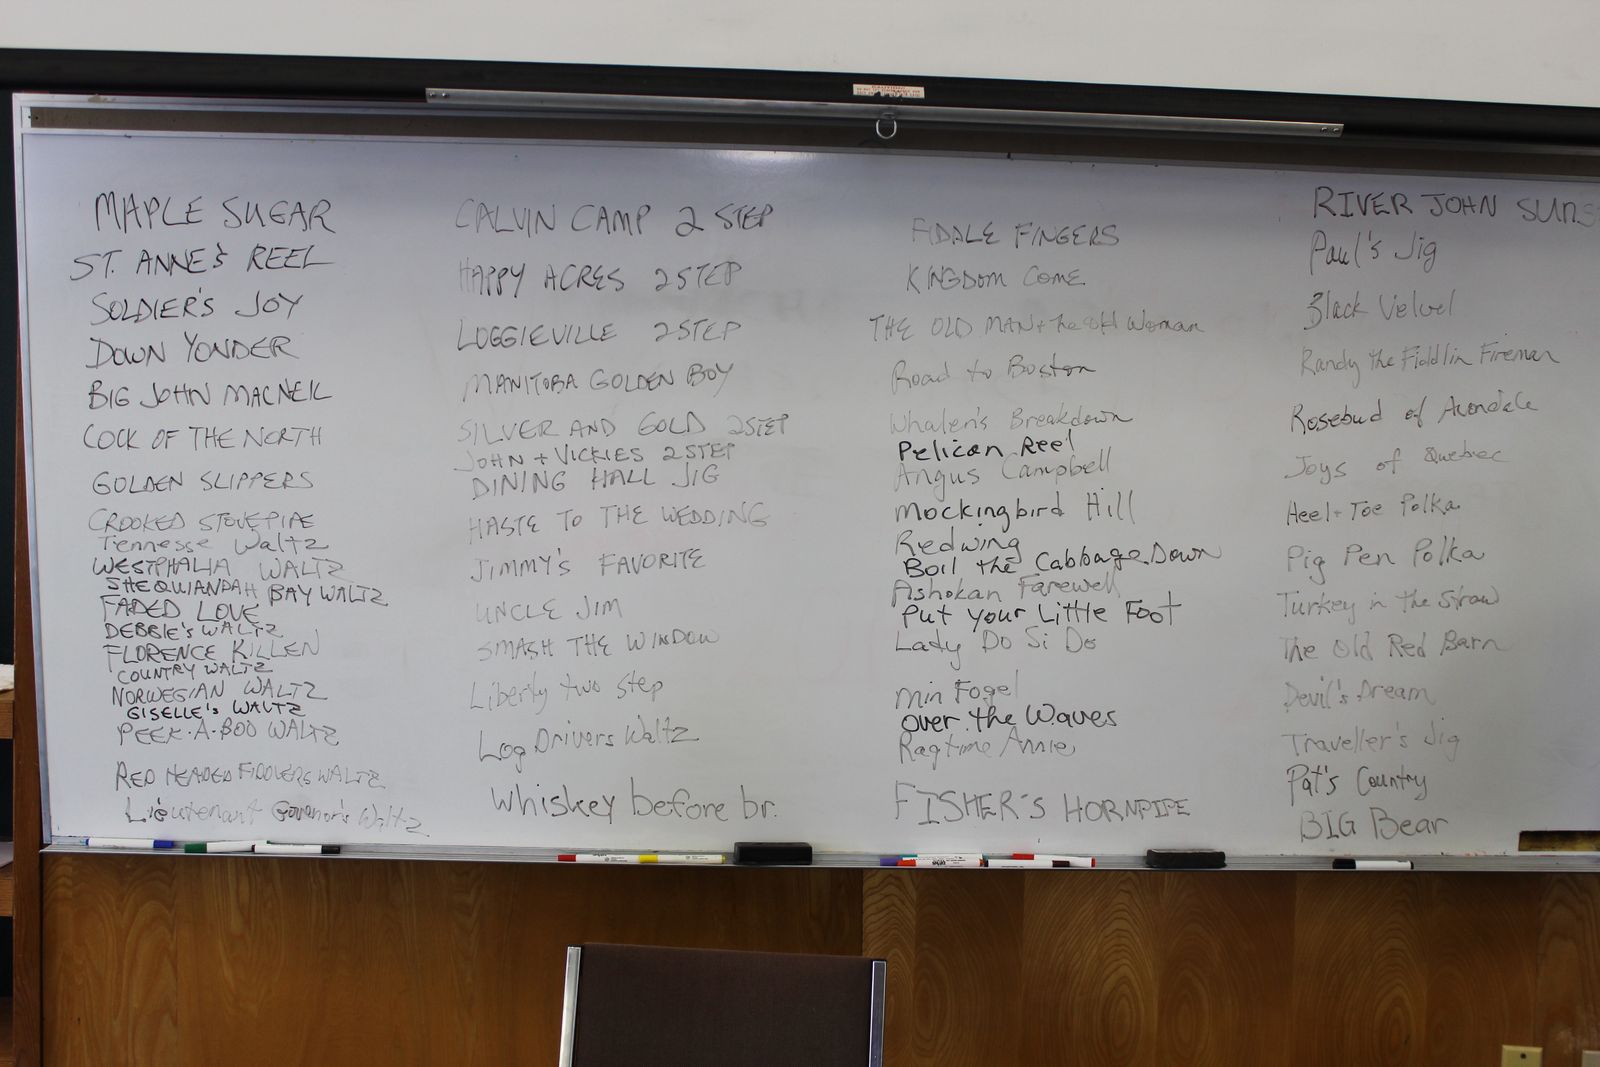 MAPLE SUGAR
ST. ANNE'S REEL
SOLDIER'S JOY
DOWN YONDER
BIG JOHN MACNEIL
COCK OF THE NORTH
GOLDEN SLIPPERS
CROOKED STOVEPIPE
Tennesse Waltz
WESTPHALIA WALTZ
SHEQUIANDAH BAY WALTZ
FADED LOVE
DEBBIE'S WALTZ
FLORENCE KILLEN
COUNTRY WALTZ
NORWEGIAN WALTZ
GISELLE'S WALTZ
PEEK-A-BOO WALTZ
RED HEADED FIDDLERS WALTZ
Lieutenant Govenor's Waltz
CALVIN CAMP 2 STEP
HAPPY ACRES 2 STEP
LOGGIEVILLE 2 STEP
MANITOBA GOLDEN BOY
SILVER AND GOLD 2 STEP
JOHN + VICKIES 2 STEP
DINING HALL JIG
HASTE TO THE WEDDING
JIMMY'S FAVORITE
UNCLE JIM
SMASH THE WINDOW
Liberty two step
Log Drivers Waltz
Whiskey before br.
FIDDLE FINGERS
KINGDOM COME
THE OLD MAN + the old Woman
Road to Boston
Whalen's Breakdown
Pelican Reel
Angus Campbell
Mockingbird Hill
Redwing
Boil the Cabbage Down
Ashokan Farewell
Put your Little Foot
Lady Do Si Do
Min Fogel
Over the Waves
Ragtime Annie
FISHER'S HORNPIPE
RIVER JOHN SUNS
Paul's Jig
Black Velvel
Randy the Fiddlin Fireman
Rosebud of Avondale
Joys of Quebec
Heel + Toe Polka
Pig Pen Polka
Turkey in the Straw
The Old Red Barn
Devil's Dream
Traveller's Jig
Pat's Country
BIG Bear